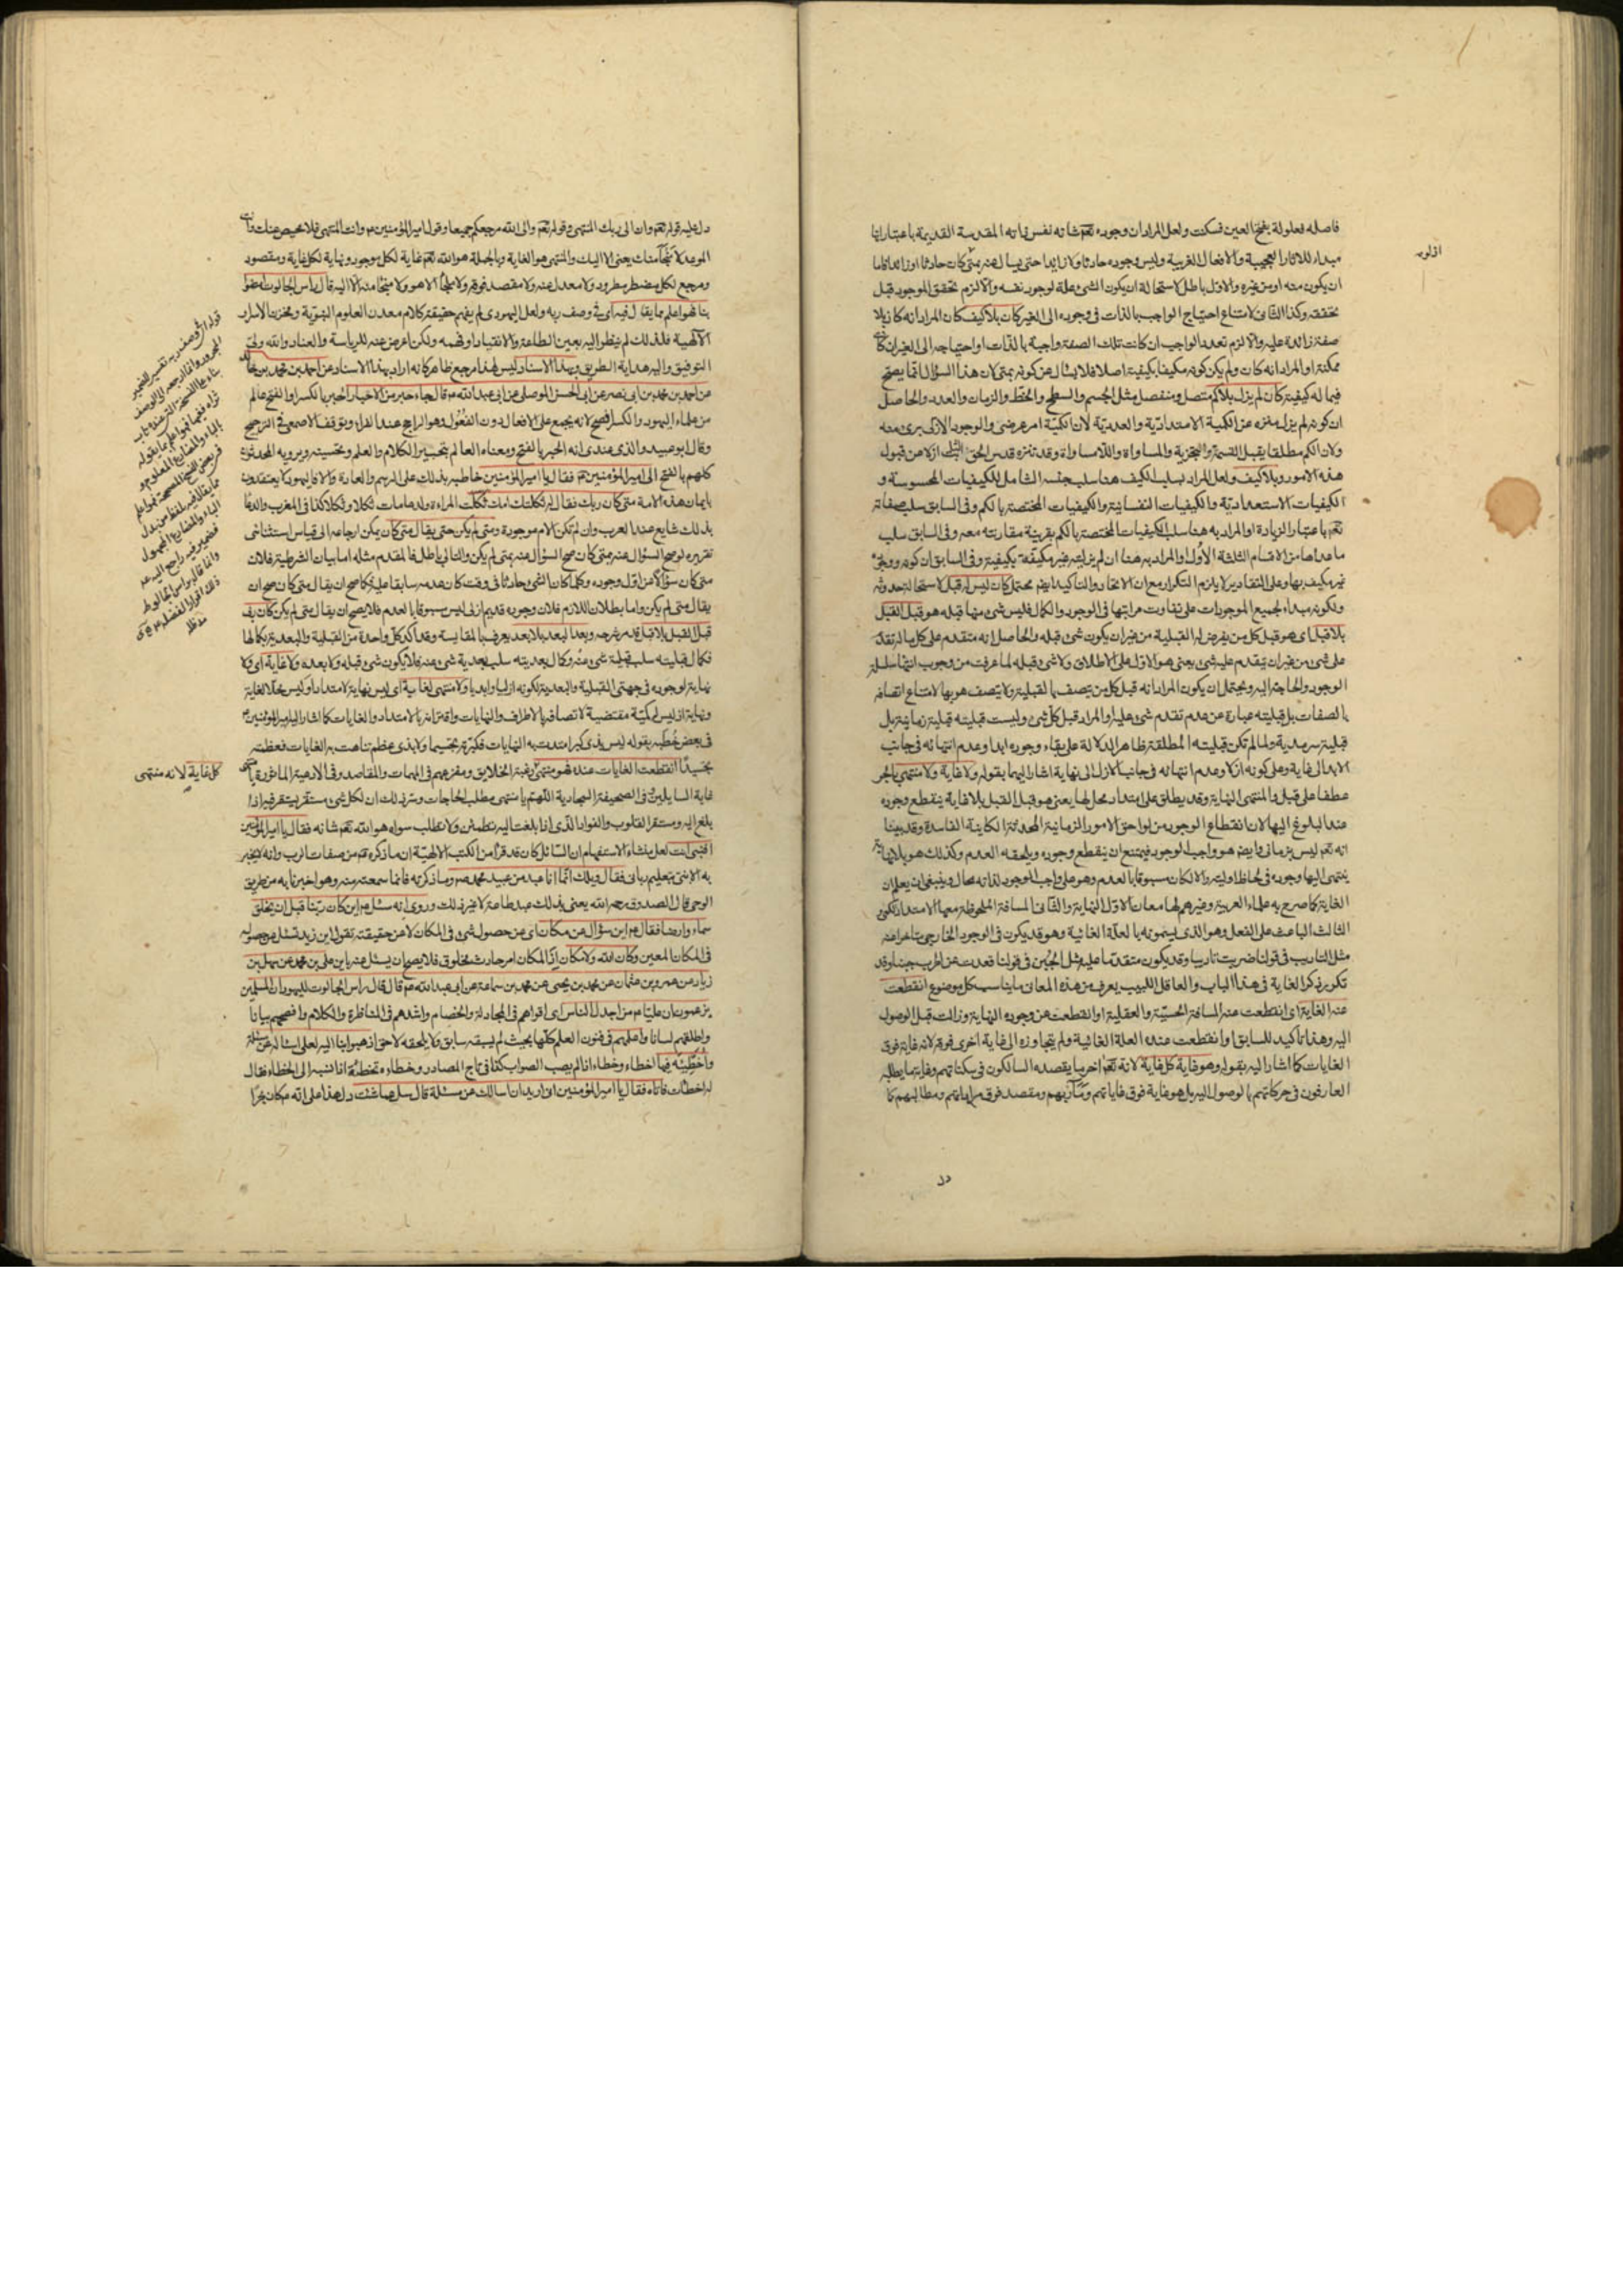 فاصله فعلولة بفتح العين فسكنت ولعل المراد ان وجوده تعم شانه نفس ذاته المقدسة القديمة باعتبار انها
مبداء للاثار العجيبة والافعال الغريبة وليس وجوده حادثا ولا زايدا حتى يسال عنه بمتى كان حادثا او زائدا فاما
ان يكون منه او من غيره والاول باطل لاستحالة ان يكون الشئ علة لوجود نفسه والا لزم تحقق الموجود قبل
تحققه وكذا الثانى لامتناع احتياج الواجب بالذات فى وجوده الى الغير كان بلا كيف كان المراد انه كان بلا
صفة زائدة عليه والا لزم تعدد الواجب ان كانت تلك الصفة واجبة بالذات او احتياجه الى الغير ان كانت
ممكنة او المراد انه كان ولم يكن كونه مكيفا بكيفية اصلا فلا يسئال عن كونه بمتى كان هذا السؤال انما يصح
فيما له كيفية كان لم يزل بلا كم متصل ومنفصل مثل الجسم والسطح والخط والزمان والعدد والحاصل
ان كونه لم يزل منزه عن الكمية الامتدادية والعددية لان الكمية امر عرضى والوجود الازلى برئ منه
ولان الكم مطلقا يقبل القسمة والتجزية والمساواة واللامساواة وقد تنزه قدس الحق ازلا من قبول
هذه الامور وبلا كيف ولعل المراد بسلب الكيف هنا سلب جنسه الشامل للكيفيات المحسوسة و
الكيفيات الاستعدادية والكيفيات النفسانية والكيفيات المختصة بالكم وفى السابق سلب صفاته
تعم باعتبار الزيادة او المراد به هنا سلب الكيفيات المختصة بالكم بقرينة مقارنته معه وفى السابق سلب
ما عداها من الاقسام الثلثة الاول او المراد به هنا ان لم يزليته غير مكيفة بكيفية وفى السابق ان كونه ووجوده
غير مكيف بها وعلى التقادير لا يلزم التكرار مع ان الاتحاد والتاكيد ايضم محتمل كان ليس له قبل لاستحالة حدوثه
ولكونه مبداء لجميع الموجودات على تفاوت مراتبها فى الوجود والكمال فليس شئ منها قبله هو قبل القبل
بلا قبل اى هو قبل كل من يفرض له القبلية من غير ان يكون شئ قبله والحاصل انه متقدم على كل ما له تقدم
على شئ من غير ان يتقدم عليه شئ يعنى هو الاول على الاطلاق ولا شئ قبله لما عرفت من وجوب انتهاء سلسلة
الوجود والحاجة اليه ويحتمل ان يكون المراد انه قبل كل من يتصف بالقبلية ولا يتصف هو بها لامتناع اتصافه
بالصفات بل قبليته عبارة عن عدم تقدم شئ عليه او المراد قبل كل شئ وليست قبليته قبلية زمانية بل
قبلية سرمدية ولما لم تكن قبليته المطلقة ظاهر الدلالة على بقاء وجوده ابدا وعدم انتهائه فى جانب
الابد الى غاية وعلى كونه ازلا وعدم انتهائه فى جانب الازل الى نهاية اشار اليهما بقوله ولا غاية ولا منتهى بالجر
عطفا على قبل والمنتهى النهاية وقد يطلق على امتداد محل لها يعنى هو قبل القبل بلا غاية ينقطع وجوده
عند البلوغ اليها لان انقطاع الوجود من لواحق الامور الزمانية المحدثة الكاينة الفاسدة وقد بينا
انه تعم ليس بزمانى وايضم هو واجب الوجود فيمتنع ان ينقطع وجوده ويلحقه العدم وكذلك هو بلا نهاية
ينتهى اليها وجوده فى لحاظ اوليته والا لكان مسبوقا بالعدم وهو على واجب الوجود لذاته محال وينبغى ان يعلم ان
الغاية كما صرح به علماء العربية وغيرهم لها معان الاول النهاية والثانى المسافة الملحوظة معها الامتداد
الثالث الباعث على الفعل وهو الذى يسمونه بالعلة الغائية وهو قد يكون فى الوجود الخارجى متاخرا عنه
مثل التاديب فى قولنا ضربت تاديبا وقد يكون متقدما عليه مثل الجبن فى قولنا قعدت عن الحرب جبنا وقد
تكرر ذكر الغاية فى هذا الباب والعاقل اللبيب يعرف من هذه المعانى ما يناسب كل موضوع انقطعت
عنه الغاية اى انقطعت عنه المسافة الحسية والعقلية او انقطعت عن وجوده النهاية وزالت قبل الوصول
اليه وهذا تاكيد للسابق او انقطعت عنده العلة الغائية ولم يتجاوزه الى غاية اخرى فوقه لانه غاية فوق
الغايات كما اشار اليه بقوله وهو غاية كل غاية لانه تعم اخر ما يقصده السالكون فى سكناتهم وغاية ما يطلبه
العارفون فى حركاتهم بالوصول اليه بل هو غاية فوق غاياتهم ومآربهم ومقصد فوق مراداتهم ومطالبهم كما
دل
دل عليه قوله تعم وان الى ربك المنتهى وقوله تعم والى الله مرجعكم جميعا وقول امير المؤمنين ع وانت المنتهى فلا محيص عنك وانت
الموعد لا منجا منك يعنى الا اليك والمنتهى هو الغاية وبالجملة هو الله تعم غاية لكل موجود ونهاية لكل غاية ومقصود
ومرجع لكل مضطر مطرود ولا معدل عنه ولا مقصد فوقه ولا ملجأ الا هو ولا منجا منه الا اليه قال راس الجالوت امضوا
بنا فهو اعلم مما يقال فيه اى فى وصف ربه ولعل اليهودى لم يفهم حقيقة كلام معدن العلوم النبوية ومخزن الاسرار
الالهية فلذلك لم ينظر اليه بعين الطاعة والانقياد وفهمه ولكن اعرض عنه للرياسة والعناد والله ولى
التوفيق واليه هداية الطريق بهذا الاسناد ليس لهذا مرجع ظاهر كانه اراد بهذا الاسناد عن احمد بن محمد بن خالد
عن احمد بن محمد بن ابى نصر عن ابى الحسن الموصلى عن ابى عبد الله ع قال جاء حبر من الاحبار الحبر بالكسر او الفتح عالم
من علماء اليهود والكسر افصح لانه يجمع على الافعال دون الفعول وهو الراجح عند الفراء وتوقف الاصمعى فى الترجيح
وقال ابو عبيد والذى عندى انه الحبر بالفتح ومعناه العالم بتحبير الكلام والعلم وتحسينه ويرويه المحدثون
كلهم بالفتح الى امير المؤمنين ع فقال يا امير المؤمنين خاطبه بذلك على الرسم والعادة والا فاليهود لا يعتقدون
بايمان هذه الامة متى كان ربك فقال له ثكلتك امك ثكلت المراءة ولدها مات ثكلا وثكلا كذا فى المغرب والدعاء
بذلك شايع عند العرب وان لم تكن الام موجودة ومتى لم يكن حتى يقال متى كان يمكن ارجاعه الى قياس استثنائى
تقريره لو صح السؤال عنه بمتى كان صح السؤال عنه بمتى لم يكن والتالى باطل فالمقدم مثله اما بيان الشرطية فلان
متى كان سؤال عن اول وجوده وكلما كان الشئ حادثا فى وقت كان عدمه سابقا عليه فكما صح ان يقال متى كان صح ان
يقال متى لم يكن واما بطلان اللازم فلان وجوده قديم ازلى ليس مسبوقا بالعدم فلا يصح ان يقال متى لم يكن كان ربى
قبل القبل بلا قبل قد مر شرحه وبعد البعد بلا بعد يعرف بالمقايسة وقد اكد كل واحدة من القبلية والبعدية بكمالها
فكمال قبليته سلب قبلية شئ عنه وكمال بعديته سلب بعدية شئ عنه فلا يكون شئ قبله ولا بعده ولا غاية اى لا
نهاية لوجوده فى جهتى القبلية والبعدية لكونه ازليا وابديا ولا منتهى لغايته اى ليس نهاية لامتداد او ليس محلا لغاية
ونهاية اذ ليس له كمية مقتضية لاتصافه بالاطراف والنهايات واقترانه بالامتداد والغايات كما اشار اليه امير المؤمنين ع
فى بعض خطبه بقوله ليس بذى كبر امتدت به النهايات فكبرته تجسيما ولا بذى عظم تناهت به الغايات فعظمته
تجسيدا انقطعت الغايات عنده فهو منتهى رغبة الخلايق ومفزعهم فى المهمات والمقاصد وفى الادعية الماثورة يا منتهى
غاية السايلين وفى الصحيفة السجادية اللهم يا منتهى مطلب الحاجات وسر ذلك ان لكل شئ مستقر يستقر فيه اذا
بلغ اليه ومستقر القلوب والفؤاد الذى اذا بلغت اليه تطمئن ولا تطلب سواه هو الله تعم شانه فقال يا امير المؤمنين
افنبى انت لعل منشاء الاستفهام ان السائل كان قد قرأ من الكتب الالهية ان ما ذكره ع من صفات الرب وانه لا يخبر
به الا نبى بتعليم ربانى فقال ويلك انما انا عبد من عبيد محمد ص وما ذكرته فانما سمعته منه وهو اخبرنا به من طريق
الوحى قال الصدوق رحمه الله يعنى بذلك عبد طاعة لا غير ذلك وروى انه سئل ع اين كان ربنا قبل ان يخلق
سماء وارضا فقال ع اين سؤال عن مكان اى عن حصول شئ فى المكان لا عن حقيقته تقول اين زيد تسئل عن حصوله
فى المكان المعين وكان الله ولا مكان اذ المكان امر حادث مخلوق فلا يصح ان يسئل عنه باين على بن محمد عن سهل بن
زياد عن عمرو بن عثمان عن محمد بن يحيى عن محمد بن سماعة عن ابى عبد الله ع قال قال راس الجالوت لليهود ان المسلمين
يزعمون ان عليا ع من اجدل الناس اى اقواهم فى المجادلة والخصام واشدهم فى المناظرة والكلام وافصحهم بيانا
واطلقهم لسانا واعلمهم فى فنون العلم كلها بحيث لم يسبقه سابق ولا يلحقه لاحق اذهبوا بنا اليه لعلى اسئاله عن مسئلة
واخطئه فيها الخطاء وخطاء انا لم يصب الصواب كذا فى تاج المصادر وخطاءه تخطئة اذا نسبه الى الخطاء فقال
له اخطات فاتاه فقال يا امير المؤمنين انى اريد ان اسالك عن مسئلة قال سل عما شئت دل هذا على انه ع كان بحرا
كل غاية لانه منتهى